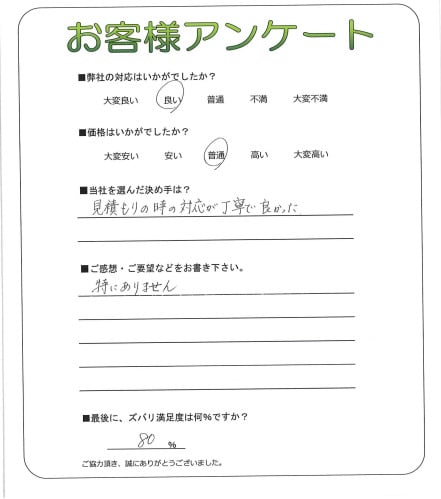 お客様アンケート
■弊社の対応はいかがでしたか？
大変良い 良い 普通 不満 大変不満
■価格はいかがでしたか？
大変安い 安い 普通 高い 大変高い
■当社を選んだ決め手は？
見積もりの時の対応が丁寧で良かった
■ご感想・ご要望などをお書き下さい。
特にありません
■最後に、ズバリ満足度は何％ですか？
80 ％
ご協力頂き、誠にありがとうございました。